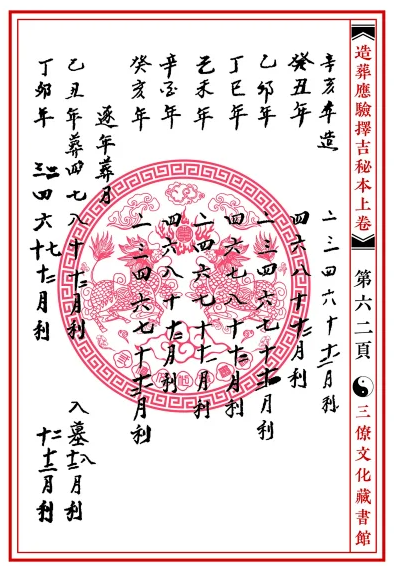 造葬應驗擇吉秘本上卷
第六二頁
三僚文化藏書館
辛亥年造 二三四六十十二月利
癸丑年 四六八十十二月利
乙卯年 二三四六七十十二月利
丁巳年 四六七八十十二月利
乙未年 二四六七十十二月利
辛酉年 四六八十十二月利
癸亥年 二三四六七十十二月利
逐年葬月
乙丑年葬四七八十十二月利 入墓十二八月利
丁卯年 四六七十十二月利 十二十二月利